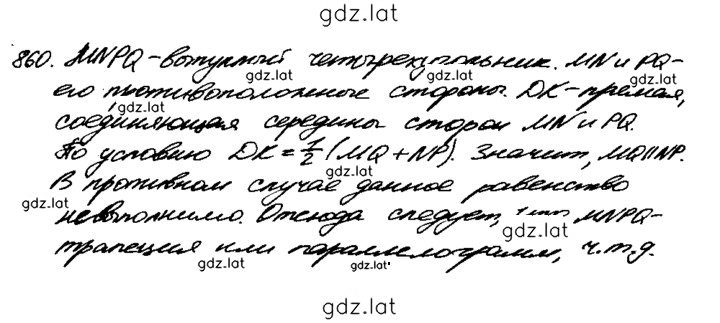 gdz.lat
860. MNPQ - выпуклый четырехугольник. MN и PQ -
gdz.lat gdz.lat gdz.lat
его противоположные стороны. DK - прямая,
gdz.lat gdz.lat
соединяющая середины сторон MN и PQ.
По условию DK = 1/2 (MQ + NP). Значит, MQ || NP.
gdz.lat gdz.lat
В противном случае данное равенство
gdz.lat
невыполнимо. Отсюда следует, что MNPQ -
gdz.lat
трапеция или параллелограмм, ч.т.д.
gdz.lat gdz.lat gdz.lat
gdz.lat